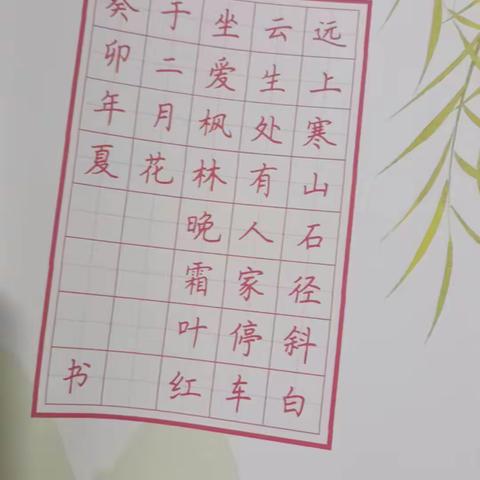 远上寒山石径斜白
云生处有人家停车
坐爱枫林晚霜叶红
于二月花
癸卯年夏 书